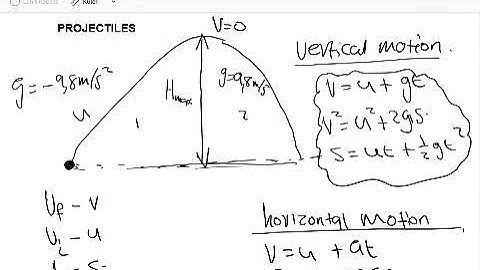 Ruler
PROJECTILES
V=0
vertical motion.
g=-9,8m/s²
g=9,8m/s²
u
Hmax
1
2
V = u + gt
V² = u² + 2gs
s = ut + ½gt²
Uf - V
Ui - u
horizontal motion
V = u + at